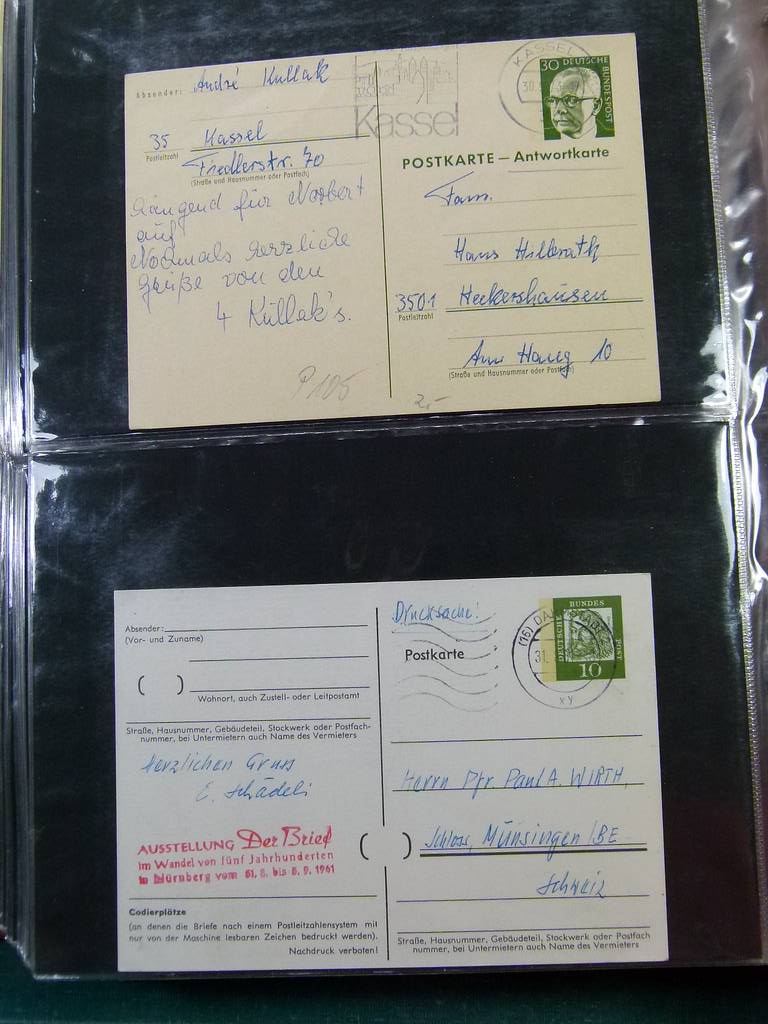 Absender: André Kullak
35 Kassel
Postleitzahl
Friedlerstr. 70
(Straße und Hausnummer oder Postfach)
für Norbert
auf
Nochmals herzliche
Grüße von den
4 Kullak's.
P 105
Kassel
KASSEL
30.
30 DEUTSCHE BUNDESPOST
POSTKARTE – Antwortkarte
Fam.
Hans Hillerath
3501 Heckershausen
Postleitzahl
Am Hang 10
(Straße und Hausnummer oder Postfach)
2,-
Absender:
(Vor- und Zuname)
( )
Wohnort, auch Zustell- oder Leitpostamt
Straße, Hausnummer, Gebäudeteil, Stockwerk oder Postfach-
nummer, bei Untermietern auch Name des Vermieters
Herzlichen Gruss
E. Schädeli
AUSSTELLUNG Der Brief
im Wandel von fünf Jahrhunderten
in Nürnberg vom 31. 8. bis 5. 9. 1961
Codierplätze
(an denen die Briefe nach einem Postleitzahlensystem mit
nur von der Maschine lesbaren Zeichen bedruckt werden).
Nachdruck verboten!
Drucksache!
Postkarte
(16)
31.
xy
DEUTSCHE BUNDES POST
10
Herrn Pfr. Paul A. WIRTH,
( ) Schloss, Münsingen/BE
Schweiz
Straße, Hausnummer, Gebäudeteil, Stockwerk oder Postfach
nummer, bei Untermietern auch Name des Vermieters